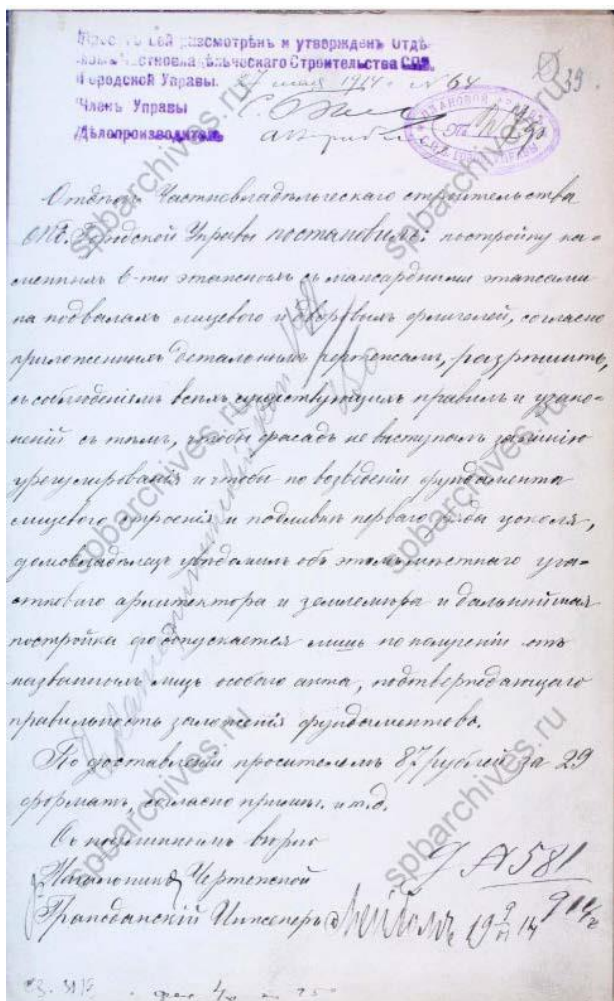 разсмотрѣнъ и утвержденъ Отдѣ-
Строительства СПБ.
Городской Управы. 27 мая 1914 г. № 64
Членъ Управы
Дѣлопроизводитель
39
Отдѣлъ Частновладѣльческаго строительства
СПБ. Городской Управы постановилъ: постройку ка-
менныхъ 6-ти этажныхъ съ мансардными этажами
на подвалахъ лицевого и дворовыхъ флигелей, согласно
приложеннымъ детальнымъ чертежамъ, разрѣшить,
съ соблюденіемъ всѣхъ существующихъ правилъ и узако-
неній съ тѣмъ, чтобы фасадъ не выступалъ за линію
урегулированія и чтобы по возведеніи фундамента
лицевого строенія и подливки перваго ряда цоколя,
домовладѣлецъ увѣдомилъ объ этомъ мѣстнаго уча-
стковаго архитектора и землемѣра и дальнѣйшая
постройка допускается лишь по полученіи отъ
названныхъ лицъ особаго акта, подтверждающаго
правильность заложенія фундаментовъ.
По доставленіи просителемъ 87 рублей за 29
форматъ, согласно и т.д.
Съ подлиннымъ вѣрно
Начальникъ Чертежной
Гражданскій Инженеръ
№ 581
spbarchives.ru
spbarchives.ru
spbarchives.ru
spbarchives.ru
spbarchives.ru
spbarchives.ru